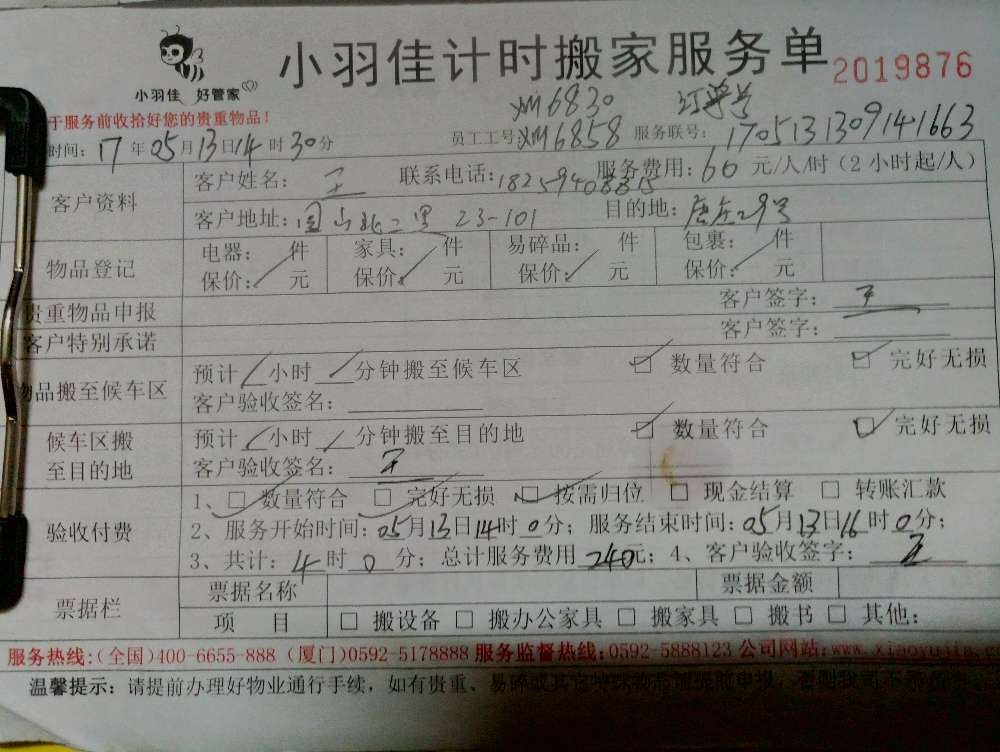 小羽佳计时搬家服务单 2019876
小羽佳 好管家
于服务前收拾好您的贵重物品！ XM6830
时间：17年05月13日14时30分 员工工号XM6858 服务联号：1705131309141663
客户资料 客户姓名：王 联系电话：18259408815 服务费用：60元/人/时（2小时起/人）
客户地址：北二里 23-101 目的地：29号
物品登记 电器： 件 家具： 件 易碎品： 件 包裹： 件
保价： 元 保价： 元 保价： 元 保价： 元
贵重物品申报 客户签字：王
客户特别承诺 客户签字：
物品搬至候车区 预计 小时 分钟搬至候车区 数量符合 完好无损
客户验收签名：
候车区搬至目的地 预计 小时 分钟搬至目的地 数量符合 完好无损
客户验收签名：王
验收付费 1、□ 数量符合 □ 完好无损 □ 按需归位 □ 现金结算 □ 转账汇款
2、服务开始时间：05月13日14时0分；服务结束时间：05月13日16时0分；
3、共计：4时0分；总计服务费用240元；4、客户验收签字：王
票据栏 票据名称 票据金额
项 目 □ 搬设备 □ 搬办公家具 □ 搬家具 □ 搬书 □ 其他：
服务热线：(全国)400-6655-888 (厦门)0592-5178888 服务监督热线：0592-5888123 公司网站：www.xiaoyujia.c
温馨提示：请提前办理好物业通行手续，如有贵重、易碎或其它特殊物品请提前申报，否则我司不